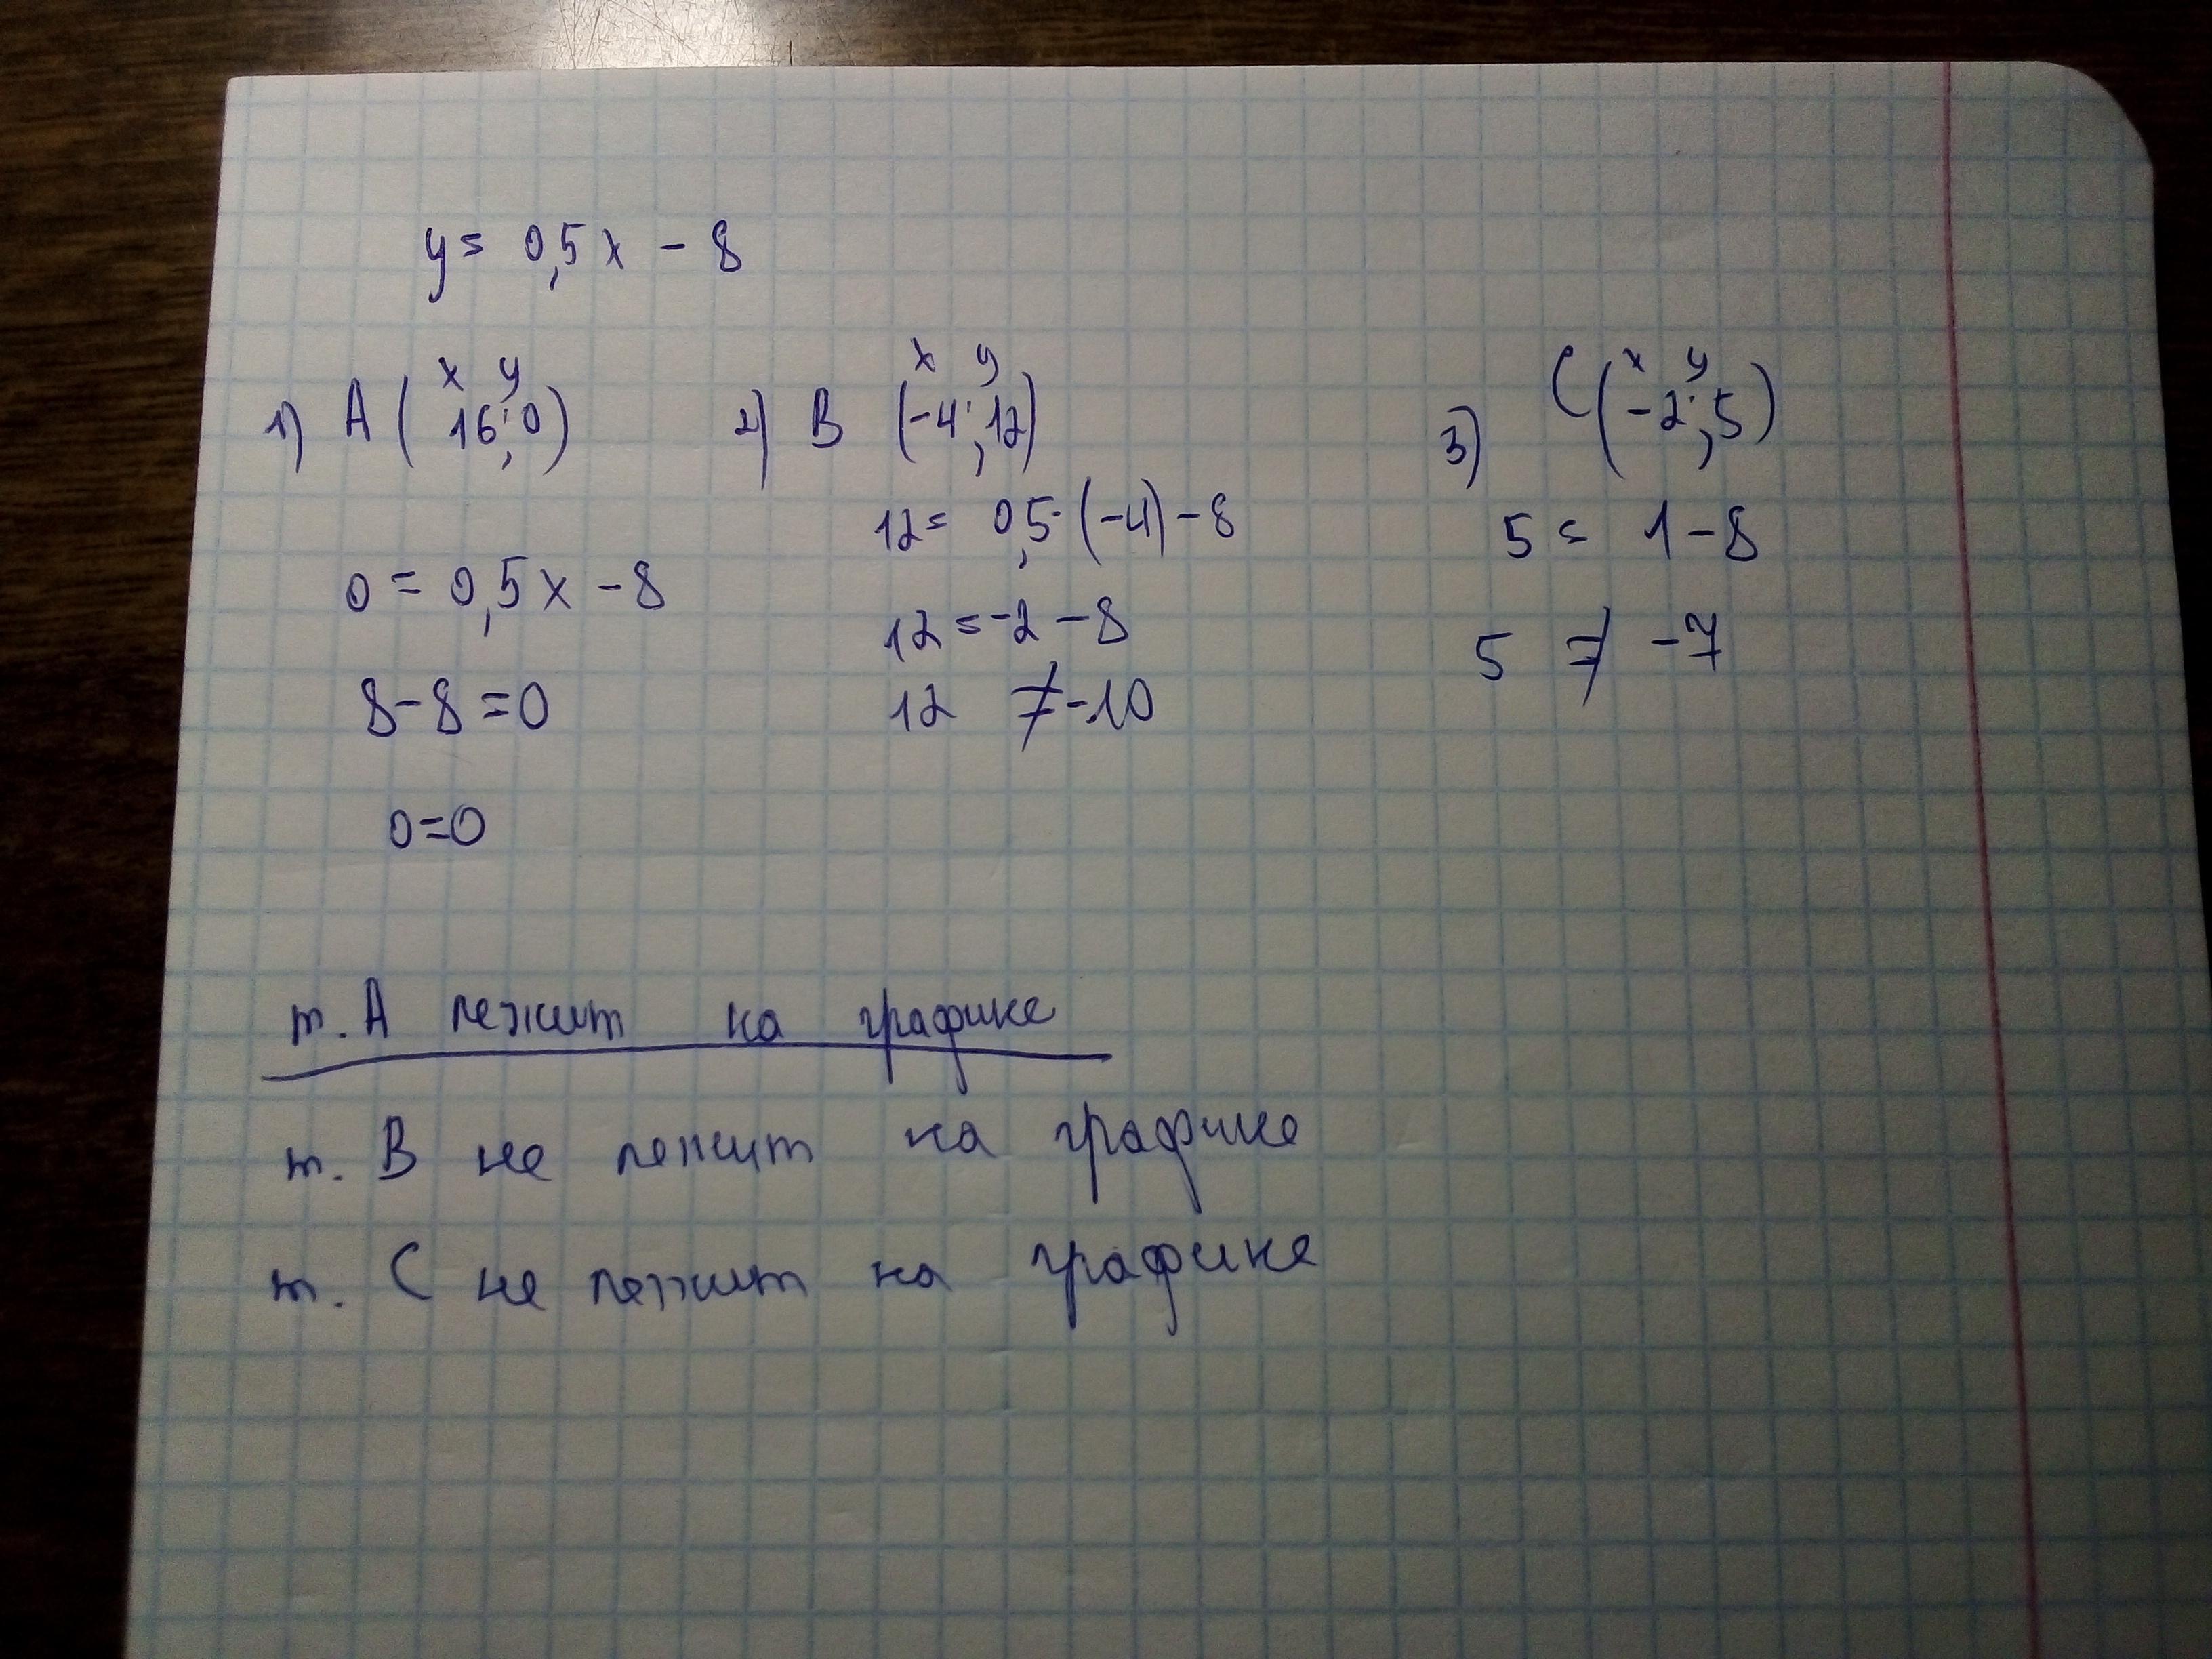 y = 0,5x - 8
x y
1) A (16; 0)
0 = 0,5x - 8
8 - 8 = 0
0 = 0
x y
2) B (-4; 12)
12 = 0,5 · (-4) - 8
12 = -2 - 8
12 ≠ -10
x y
3) C (-2; 5)
5 = 1 - 8
5 ≠ -7
т. A лежит на графике
т. B не лежит на графике
т. C не лежит на графике